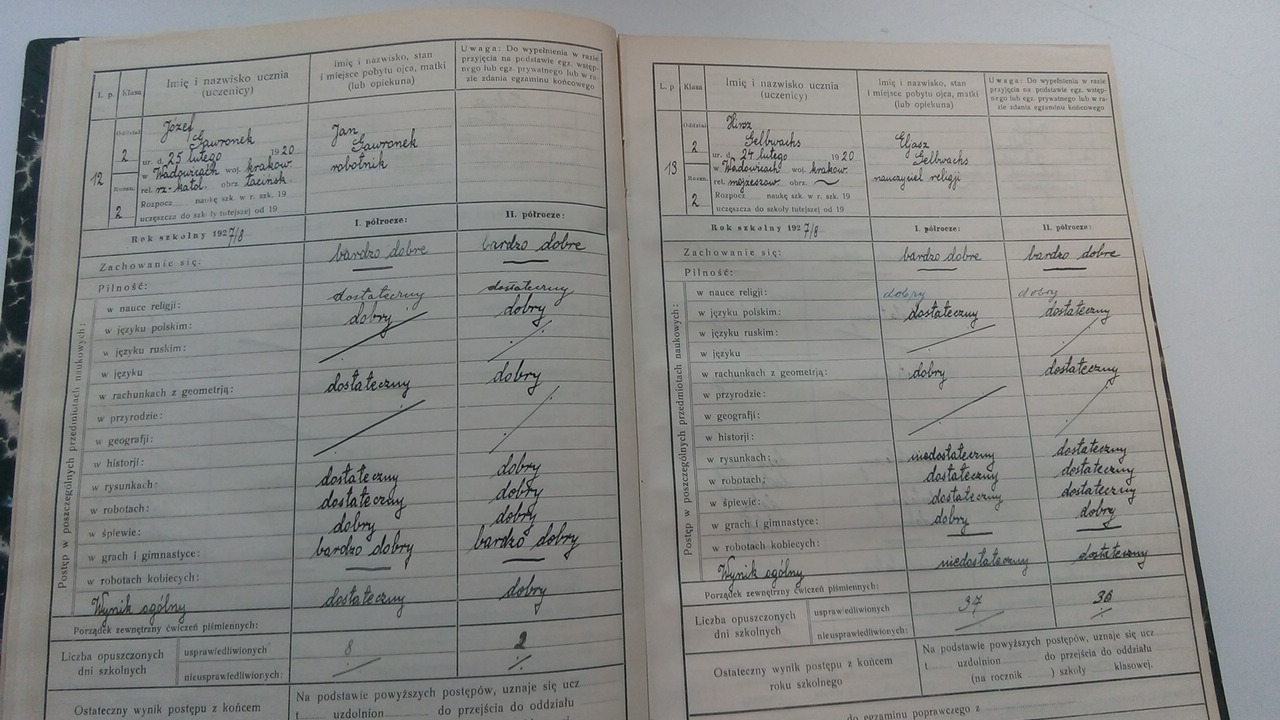 L. p.
Klasa
Imię i nazwisko ucznia
(uczenicy)
Imię i nazwisko, stan
i miejsce pobytu ojca, matki
(lub opiekuna)
Uwaga: Do wypełnienia w razie
przyjęcia na podstawie egz. wstęp-
nego lub egz. prywatnego lub w ra-
zie zdania egzaminu końcowego
12
Oddział
2
Roczn.
2
Józef
Gawronek
ur. d. 25 lutego 1920
w Wadowicach woj. krakow.
rel. rz-katol. obrz. łacińsk.
Rozpocz. naukę szk. w r. szk. 19
uczęszcza do szkoły tutejszej od 19
Jan
Gawronek
robotnik
Rok szkolny 1927/8
I. półrocze:
II. półrocze:
Zachowanie się: bardzo dobre bardzo dobre
Pilność:
Postęp w poszczególnych przedmiotach naukowych:
w nauce religji: dostateczny dostateczny
w języku polskim: dobry dobry
w języku ruskim:
w języku
w rachunkach z geometrją: dostateczny dobry
w przyrodzie:
w geografji:
w historji:
w rysunkach: dostateczny dobry
w robotach: dostateczny dobry
w śpiewie: dobry dobry
w grach i gimnastyce: bardzo dobry bardzo dobry
w robotach kobiecych:
Wynik ogólny dostateczny dobry
Porządek zewnętrzny ćwiczeń piśmiennych:
Liczba opuszczonych
dni szkolnych
usprawiedliwionych 8 2
nieusprawiedliwionych:
Ostateczny wynik postępu z końcem
Na podstawie powyższych postępów, uznaje się ucz
t uzdolnion do przejścia do oddziału
L. p
Klasa
Imię i nazwisko ucznia
(uczenicy)
Imię i nazwisko, stan
i miejsce pobytu ojca, matki
(lub opiekuna)
Uwaga: Do wypełnienia w razie
przyjęcia na podstawie egz. wstęp-
nego lub egz. prywatnego lub w ra-
zie zdania egzaminu końcowego
13
Oddział
2
Roczn.
2
Hirsz
Gelbwachs
ur. d. 24 lutego 1920
w Wadowicach woj. krakow.
rel. mojżeszow. obrz.
Rozpocz. naukę szk. w r. szk. 19
uczęszcza do szkoły tutejszej od 19
Eljasz
Gelbwachs
nauczyciel religji
Rok szkolny 1927/8
I. półrocze:
II. półrocze:
Zachowanie się: bardzo dobre bardzo dobre
Pilność:
Postęp w poszczególnych przedmiotach naukowych:
w nauce religji: dobry dobry
w języku polskim: dostateczny dostateczny
w języku ruskim:
w języku
w rachunkach z geometrją: dobry dostateczny
w przyrodzie:
w geografji:
w historji:
w rysunkach: niedostateczny dostateczny
w robotach: dostateczny dostateczny
w śpiewie: dostateczny dostateczny
w grach i gimnastyce: dobry dobry
w robotach kobiecych:
Wynik ogólny niedostateczny dostateczny
Porządek zewnętrzny ćwiczeń piśmiennych:
Liczba opuszczonych
dni szkolnych
usprawiedliwionych 37 36
nieusprawiedliwionych:
Ostateczny wynik postępu z końcem
roku szkolnego
Na podstawie powyższych postępów, uznaje się ucz
t uzdolnion do przejścia do oddziału
(na rocznik ) szkoły klasowej.
do egzaminu poprawczego z